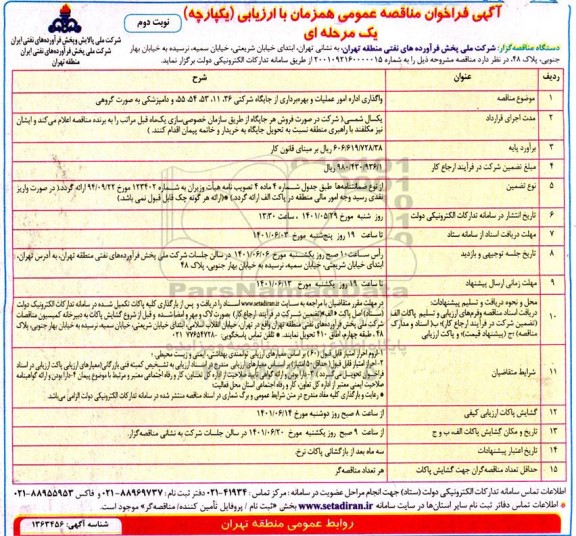 نوبت دوم
آگهی فراخوان مناقصه عمومی همزمان با ارزیابی (یکپارچه)
یک مرحله ای
شرکت ملی پالایش و پخش فرآورده های نفتی ایران
شرکت ملی پخش فرآورده های نفتی ایران
منطقه تهران
دستگاه مناقصه‌گزار: شرکت ملی پخش فرآورده های نفتی منطقه تهران، به نشانی تهران، ابتدای خیابان شریعتی، خیابان سمیه، نرسیده به خیابان بهار
جنوبی، پلاک ۴۸، در نظر دارد مناقصه مشروحه ذیل را به شماره ۲۰۰۱۰۹۲۱۶۰۰۰۰۱۵ از طریق سامانه تدارکات الکترونیکی دولت برگزار نماید.
ردیف عنوان شرح
۱ موضوع مناقصه واگذاری اداره امور عملیات و بهره‌برداری از جایگاه شرکتی ۳۶، ۱۱، ۵۳، ۵۴، ۵۵، و دامپزشکی به صورت گروهی
۲ مدت اجرای قرارداد یکسال شمسی( در صورت فروش هر جایگاه از طریق سازمان خصوصی‌سازی یک‌ماه قبل مراتب را به برنده مناقصه اعلام می‌کند و ایشان
نیز مکلفند با راهبری منطقه نسبت به تحویل جایگاه به خریدار و خاتمه پیمان اقدام کنند.)
۳ برآورد پایه ۶۰۶/۶۱۹/۷۲۸/۳۸ ریال بر مبنای قانون کار
۴ مبلغ تضمین شرکت در فرآیند ارجاع کار ۹۸۰/۴۳۰/۹۳۶/۱ ریال
۵ نوع تضمین از نوع ضمانتنامه‌ها طبق جدول شماره ۴ ماده ۴ تصویب نامه هیأت وزیران به شماره ۱۲۳۴۰۲ مورخ ۹۴/۰۹/۲۲ ارائه گردد.( در صورت واریز
نقدی رسید وجه امور مالی منطقه در پاکت الف ارائه گردد.) *(ارائه هر گونه چک قابل قبول نمی باشد)
۶ تاریخ انتشار در سامانه تدارکات الکترونیکی دولت روز شنبه مورخ ۱۴۰۱/۰۵/۲۹ ، ساعت ۱۳:۳۰
۷ مهلت دریافت اسناد از سامانه ستاد تا ساعت ۱۹ روز پنج‌شنبه مورخ ۱۴۰۱/۰۶/۰۳
۸ تاریخ جلسه توجیهی و بازدید رأس ساعت ۱۰ صبح روز یکشنبه مورخ ۱۴۰۱/۰۶/۰۶ در سالن جلسات شرکت ملی پخش فرآورده‌های نفتی منطقه تهران، به آدرس تهران،
ابتدای خیابان شریعتی، خیابان سمیه، نرسیده به خیابان بهار جنوبی، پلاک ۴۸
۹ مهلت زمانی ارسال پیشنهاد تا ساعت ۱۹ روز یکشنبه مورخ ۱۴۰۱/۰۶/۱۳
۱۰ محل و نحوه دریافت و تسلیم پیشنهادات:
دریافت اسناد مناقصه وفرم‌های ارزیابی و تسلیم پاکات الف
(تضمین شرکت در فرآیند ارجاع کار)؛ ب( اسناد و مدارک
مناقصه)؛ج (پیشنهاد قیمت)؛ و پاکت ارزیابی
در مهلت مقرر متقاضیان با مراجعه به سایت www.setadiran.ir اسناد را دریافت و پس از بارگذاری کلیه پاکات تکمیل شده در سامانه تدارکات الکترونیک دولت
(ستاد) اصل پاکت «الف»(تضمین شرکت در فرآیند ارجاع کار) بصورت لاک و مهر و امضاء شده و قبل از شروع گشایش پاکات به دبیرخانه کمیسیون مناقصات
شرکت ملی پخش فرآورده‌های نفتی منطقه تهران واقع در تهران، خیابان انقلاب اسلامی، ابتدای خیابان شریعتی، خیابان سمیه، نرسیده به خیابان بهار جنوبی، پلاک
۴۸، طبقه چهارم، اطاق ۴۱۰ تحویل نمایند.
۱۱ شرایط متقاضیان
۱۲ گشایش پاکات ارزیابی کیفی از ساعت ۸ صبح روز دوشنبه مورخ ۱۴۰۱/۰۶/۱۴
۱۳ تاریخ و مکان گشایش پاکات الف، ب و ج از ساعت ۹ صبح روز یکشنبه مورخ ۱۴۰۱/۰۶/۲۰ در سالن جلسات شرکت به نشانی مناقصه‌گزار.
۱۴ تاریخ اعتبار پیشنهادات سه ماه بعد از بازگشائی پاکات نرخ.
۱۵ حداقل تعداد مناقصه‌گران جهت گشایش پاکات هر تعداد مناقصه‌گر
اطلاعات تماس سامانه تدارکات الکترونیکی دولت (ستاد) جهت انجام مراحل عضویت در سامانه: مرکز تماس : ۴۱۹۳۴-۰۲۱ دفتر ثبت نام : ۸۸۹۶۹۷۳۷-۰۲۱ و فاکس ۸۸۹۵۵۹۵۳-۰۲۱
* اطلاعات تماس دفاتر ثبت نام سایر استان‌ها در سایت سامانه www.setadiran.ir بخش «ثبت نام / پروفایل تأمین کننده/ مناقصه‌گر» موجود است.
روابط عمومی منطقه تهران
شناسه آگهی: ۱۳۶۳۴۵۶